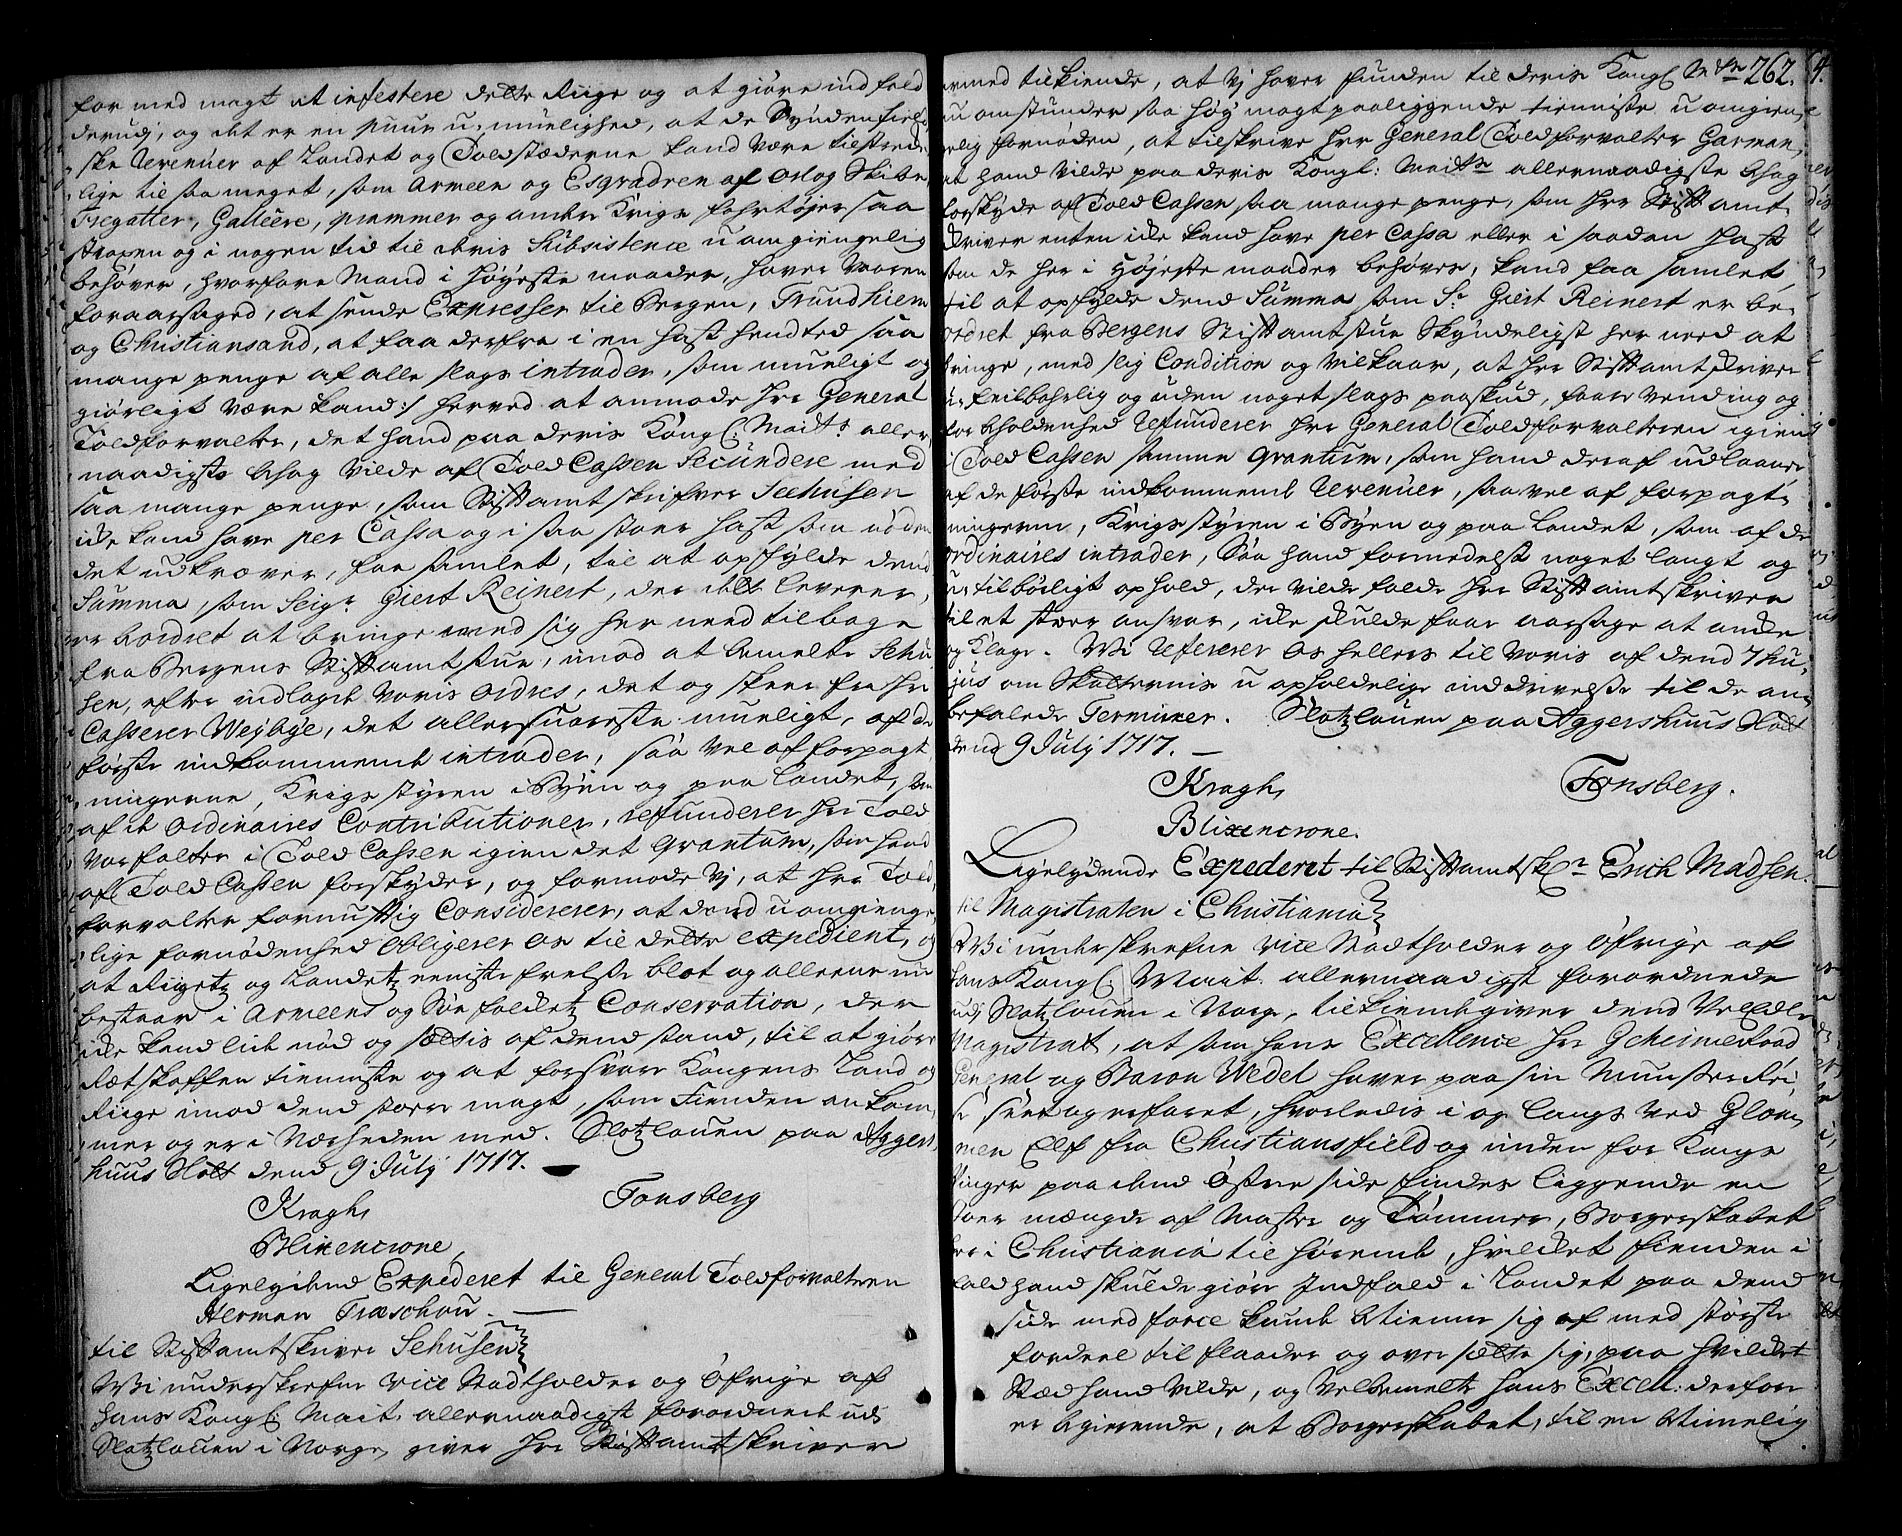 for med magt at infestere dette Riige og at giøre indfald
derudj, og det er en puur u-muelighed, at de Syndenfield,
ske Revenuer af Landet og Toldstæderne kand være tilstrede,
lige til saa meget, som Armeen og Esqvadren af Orlog Skibe,
Fregatter, Galleere, prammer og andre Krigs fahrtøjer saa
strapen og i nogen tid til deris Subsistence uomgiengelig
behøver, hvorfore Mand i høyeste maader, haver været
foraarsaged, at sende Expresser til Bergen, Trundhiem
og Christiansand, at faa derfra i en hast hendted saa
mange penge af alle slags intrader, som mueligt og
giørligt være kand:/ herved at anmode Hr General
Toldforvalter, det hand paa deris Kongl: Maits aller
naadigste behag vilde af Told Cassen Secundere med
saa mange penge, som Stiftamtskrifver Seehusen
icke kand have per Cassa og i saa stoer hast som nøden
det udkræver, faa samlet, til at opfylde dend
Summa, som Seigr Giert Reinert, der dette leverer,
er beordret at bringe med sig her need tilbage
fra Bergens Stiftamtstue, imod at bemelte Sehu
sen, efter indlagde voris Ordres, det og skeer fra Hr
Casserer Wejbye, det allersnareste mueligt, af de
første indkommende intrader, saa vel af forpagt,
ningerne, Krigsstyren i Byen og paa Landet, som
af de Ordinaires Contributioner, refunderer Hr Told
Vorfalter i Told Cassen igien det Qvantum, som hand
af Told Cassen forskyder, og formode Vj, at Hr Told,
forvalter fornufftig Considererer, at dend uomgienge,
lige fornødenhed Obligerer os til dette expedient, og
at Rigetz og Landetz eeniste frelse blot og alleene nu
bestaar i Armeens og Søe foldetz Conservation, der
icke kand lide nød og sættis af dend stand, til at giøre
Rætskaffen tienniste og at forsvare Kongens Land og
Riige imod dend store magt, som Fienden ankom,
mer og er i Nærheden med. Slotzlouen paa Agger,
huus Slott dend 9 July 1717.
Kragh, Tonsberg
Blixencrone,
Ligelydende Expederet til General Toldforvalteren
Herman Træschou.
til Stiftamtskriver Sehusen
Wi underskrefne Vice Stadtholder og Øfrige af
hans Kongl: Mait. allernaadigst forordnede udj
Slotzlouen i Norge, giver Hr Stiftamtskriver
262.
ermed tilkiende, at Vj haver funden til deris Kongl
nu omstunder saa høy magtpaaliggende tienniste uomgien,
gelig fornøden, at tilskrive Hr General Toldforvalter Garman,
at hand vilde paa deris Kongl: Maitts allernaadigste behag
forskyde af Told Cassen saa mange penge, som Hr Stiftamt
skriver enten icke kand have per Cassa eller i saadan hast
som de her i Højeste maader behøves, kand faa samlet,
til at opfylde dend Summa som Sr Giert Reinert er be,
ordret fra Bergens Stiftamtstue Skyndeligst her need at
bringe, med slig Condition og Vilkaar, at Hr Stiftamtskriver
u-feilbahrlig og uden noget slags paaskud, faare vending og
forbeholdenhed Refunderer Hr General Toldforvalteren igien
i Told Cassen samme Qvantum, som hand deraf udlaaner
af de første indkommende Revenuer, saa vel af forpagt,
ningerne, Krigsstyren i Byen og paa Landet, som af de
ordinaires intrader, Saa hand formedelst noget langt og
u-tilbørligt ophold, der vilde falde Hr Stiftamtskriver
til et stoer ansvar, icke skulde faar aarsage at anke
og Klage. Wi Refererer Os hellers til Voris af dend 7 hu,
jus om Skatternis u opholdelige inddrivelse til de an,
befalede Terminer. Slotzlouen paa Aggershuus Slott
dend 9 July 1717.
Kragh, Tonsberg.
Blixencrone.
Ligelydende Expederet til Stiftamtskr Erich Madsen.
til Magistraten i Christiania
Wi underskrefne Vice Stadtholder og Øfrige af
hans Kongl: Mait. allernaadigst forordnede
udj Slotzlouen i Norge, tilkiendegiver dend Veledle
Magistrat, at som hans Excellence Hr Geheimeraad
General og Baron Wedel haver paa sin Munster Rei,
se seet og erfaret, hvorledis i og langs ved Glom,
men Elf fra Christiansfield og inden for Kongs
Vinger paa dend Østre side findes liggende en
stoer mængde af Master og Tømmer, Borgerskabet
her i Christiania til hørende, hvilcket fienden i
fald hand skulde giøre Indfald i Landet paa dend
side med force kunde betienne sig af med største
fordeel til flaader og over sætte sig, paa hvilcket
Stæd hand vilde, og Velbemelte hans Excell: derfor
er begierende, at Borgerskabet, til en betimelig